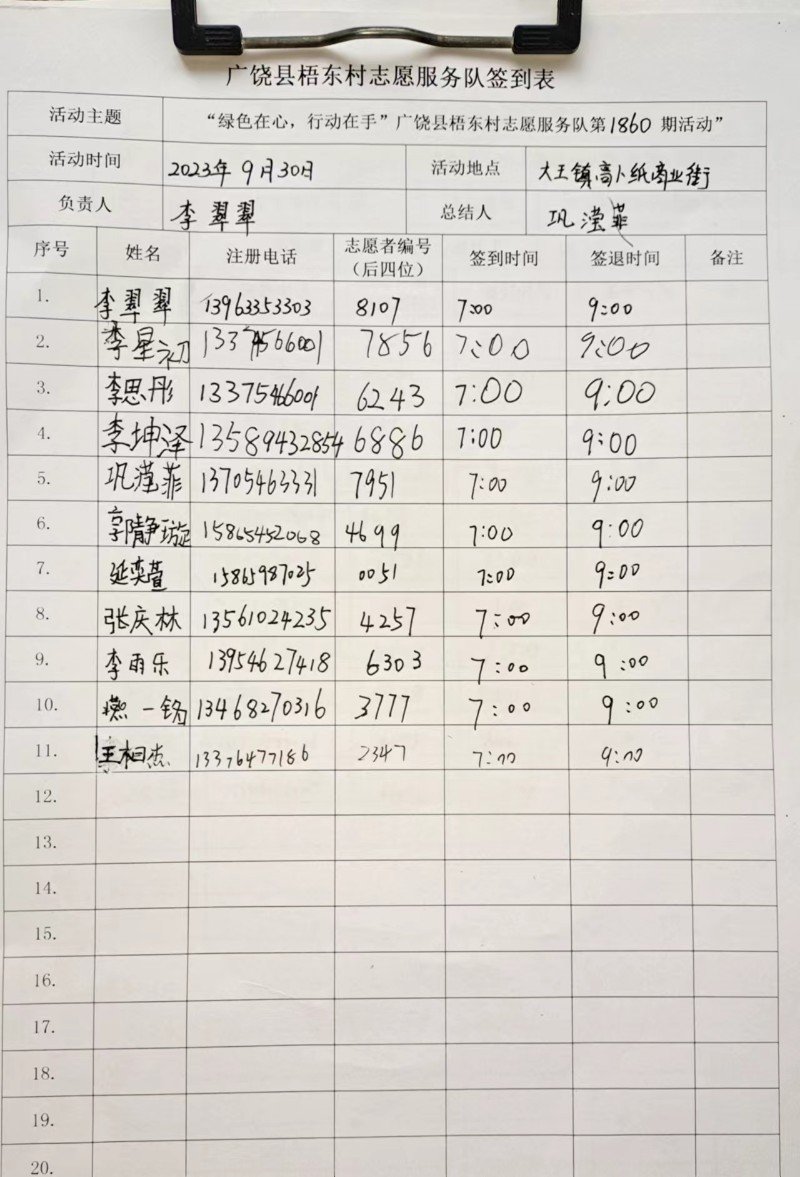 广饶县梧东村志愿服务队签到表
活动主题 “绿色在心，行动在手”广饶县梧东村志愿服务队第1860期活动”
活动时间 2023年9月30日 活动地点 大王镇高卜纸商业街
负责人 李翠翠 总结人 巩滢菲
序号 姓名 注册电话 志愿者编号（后四位） 签到时间 签退时间 备注
1. 李翠翠 13963353303 8107 7:00 9:00
2. 李星初 7856 7:00 9:00
3. 李思彤 13375466001 6243 7:00 9:00
4. 李坤泽 13589432854 6886 7:00 9:00
5. 巩滢菲 13705463331 7951 7:00 9:00
6. 静璇 15865452068 4699 7:00 9:00
7. 延奕萱 15865987025 0051 7:00 9:00
8. 张庆林 13561024235 4257 7:00 9:00
9. 李雨乐 13954627418 6303 7:00 9:00
10. 燕一铭 13468270316 3777 7:00 9:00
11. 李相杰 13376477186 2347 7:00 9:00
12.
13.
14.
15.
16.
17.
18.
19.
20.